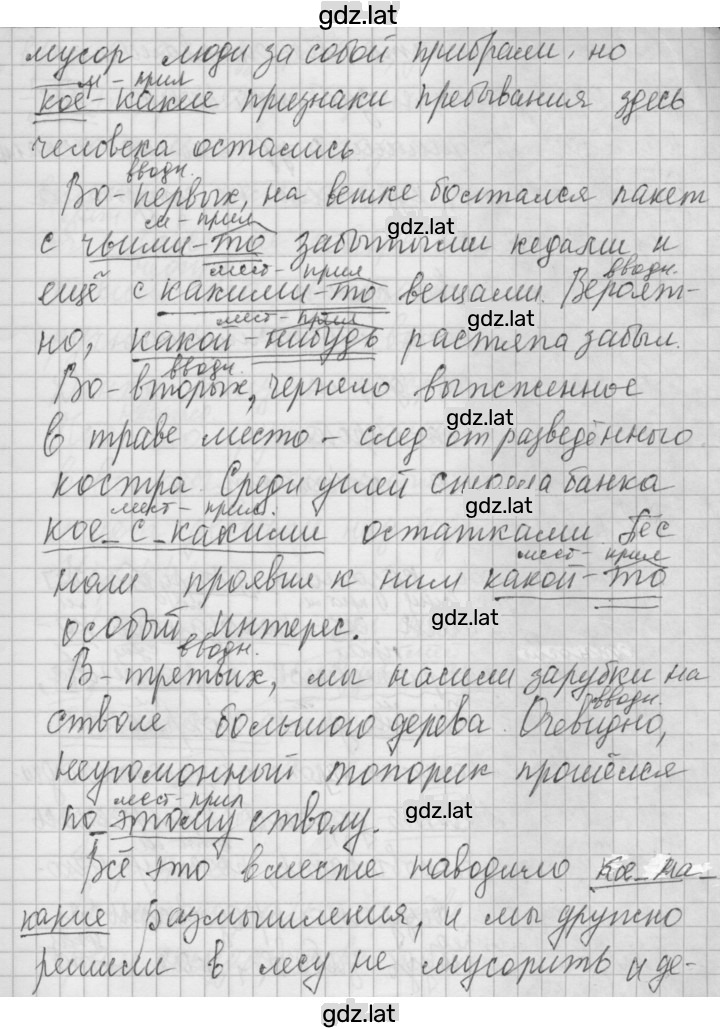 gdz.lat
мусор люди за собой прибрали, но
м - прил
кое-какие признаки пребывания здесь
человека остались
вводн.
Во-первых, на ветке болтался пакет
м - прил
gdz.lat
с чьими-то забытыми кедами и
мест - прил
вводн.
ещё с какими-то вещами. Вероят-
мест - прил
gdz.lat
но, какой-нибудь растяпа забыл.
вводн.
Во-вторых, чернело выжженное
gdz.lat
в траве место - след от разведённого
костра. Среди углей стояла банка
gdz.lat
мест - прил.
кое-с-какими остатками.
мест - прил
проявил к ним какой-то
gdz.lat
особый интерес.
вводн.
В-третьих, мы нашли зарубки на
вводн.
стволе большого дерева. Очевидно,
неугомонный топорик прошёлся
мест - прил
gdz.lat
по этому стволу.
Всё это вместе наводило кое-на-
какие размышления, и мы дружно
решили в лесу не мусорить и де-
gdz.lat